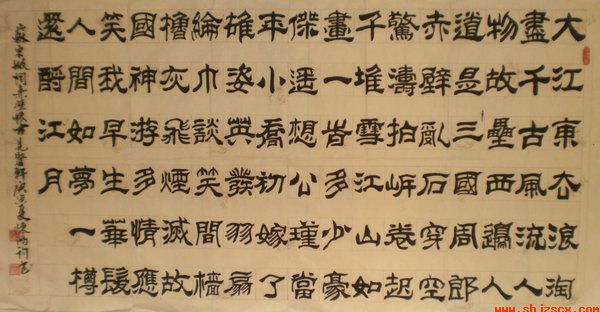 大江東去浪淘
盡千古風流人
物故壘西邊人
道是三國周郎
赤壁亂石穿空
驚濤拍岸卷起
千堆雪江山如
畫一旹多少豪
傑遥想公瑾當
年小喬初嫁了
雄姿英發羽扇
綸巾談笑間檣
櫓灰飛煙滅故
國神游多情應
笑我早生華髮
人間如夢一樽
還酹江月
蘇東坡詞赤壁懷古
www.shizscx.com